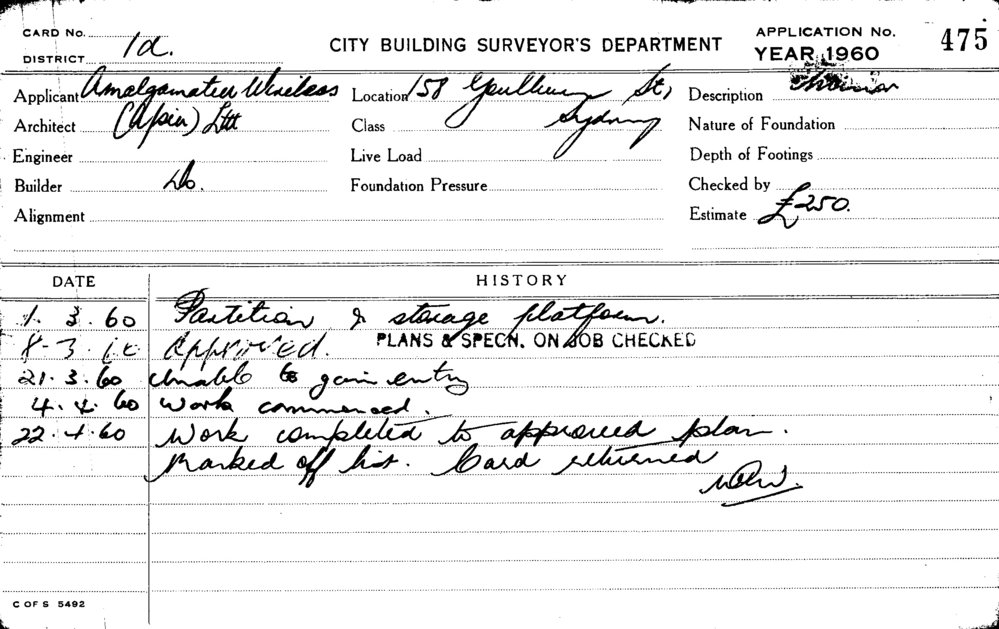 CARD No.
DISTRICT 1a.
CITY BUILDING SURVEYOR'S DEPARTMENT
APPLICATION No. 475
YEAR 1960
Applicant Amalgamated Wireless Location 158 Goulburn St, Description
Architect (A/sia) Ltd Class Sydney Nature of Foundation
Engineer Live Load Depth of Footings
Builder Do. Foundation Pressure Checked by
Alignment Estimate £250.
DATE HISTORY
1.3.60 Partition & storage platform.
8-3.60 Approved. PLANS & SPECN. ON JOB CHECKED
21.3.60 Unable to gain entry
4.4.60 Work commenced.
22.4.60 Work completed to approved plan.
Marked off list. Card returned
C OF S 5492